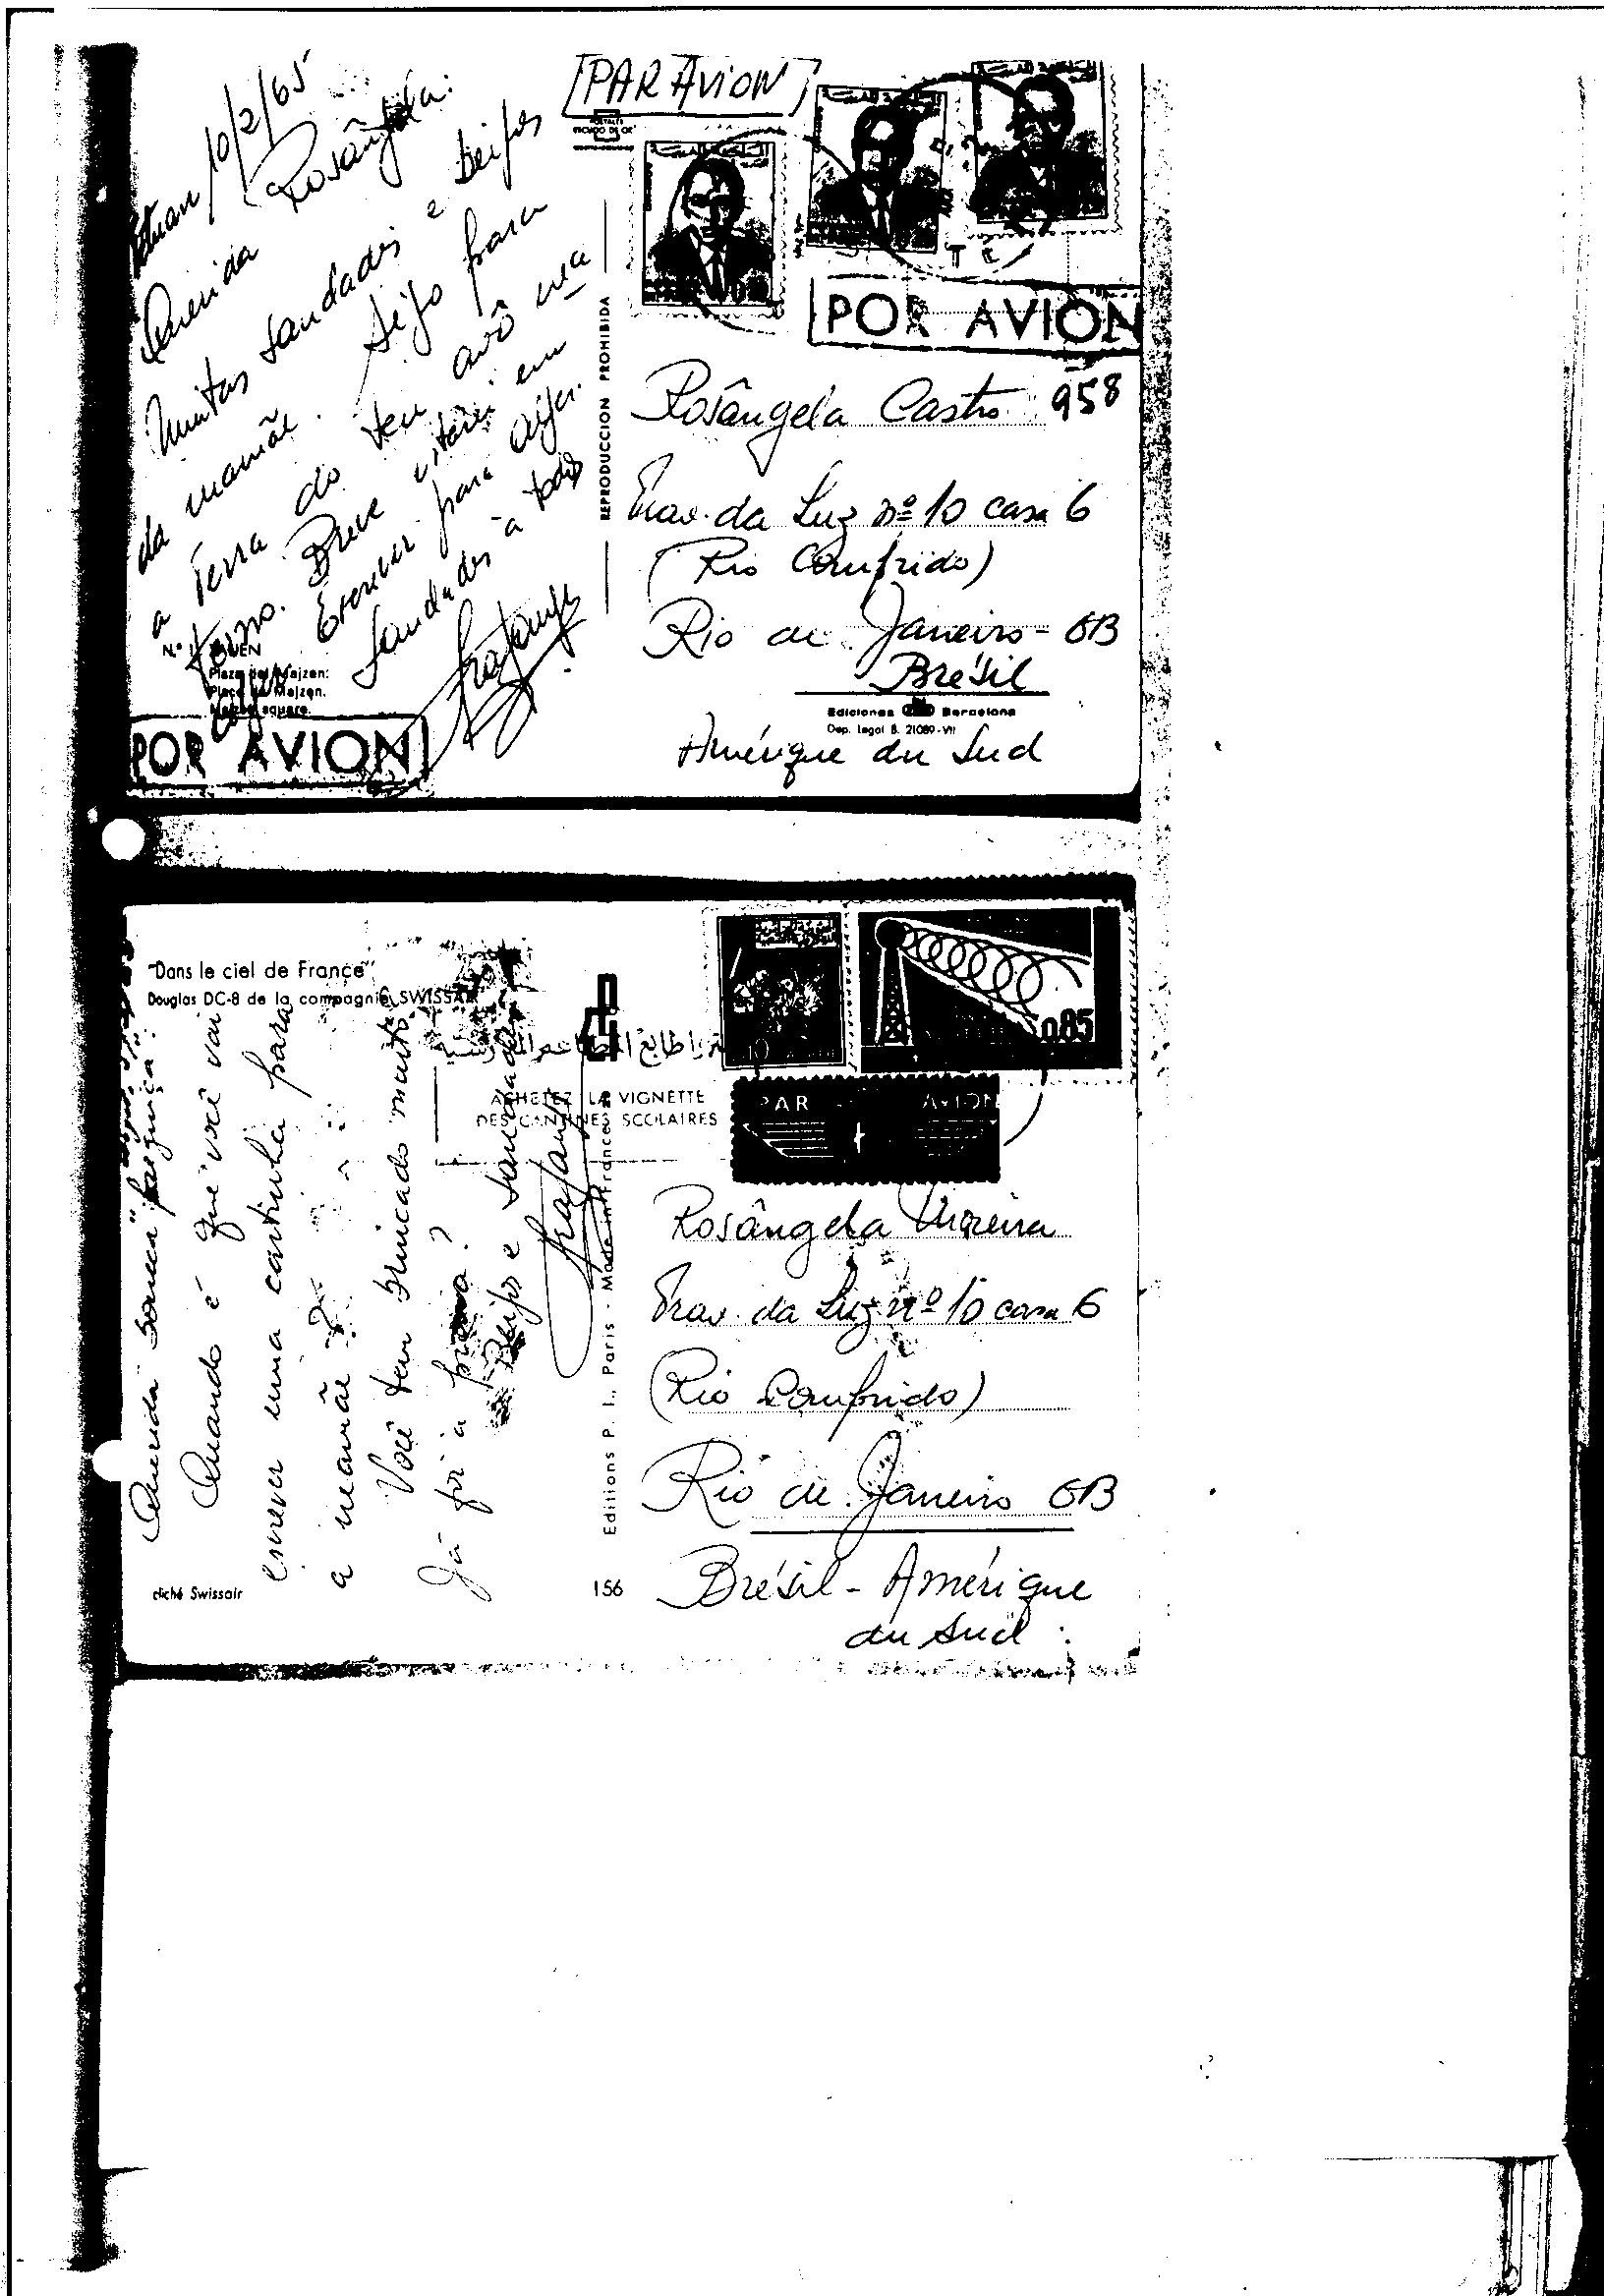 10/2/65
Querida Rosângela:
Muitas saudades e beijos
da mamãe. Sigo para
a Terra do teu avô na
Breve estarei em
Escrever para
Saudades à todos
Nº
Plaza del Majzen.
Place de Majzen.
Majzen square.
POR AVION
PAR AVION
REPRODUCCION PROHIBIDA
POR AVION
Rosângela Castro 958
Trav. da Luz nº 10 casa 6
(Rio Comprido)
Rio de Janeiro - GB
Brésil
Ediciones Barcelona
Dep. Legal B. 21089-VII
Amérique du Sud
"Dans le ciel de France"
Douglas DC-8 de la compagnie SWISSAIR
Querida
Quando é que você vai
escrever uma cartinha para
a mamãe?
Você tem brincado muito?
Já foi à praia?
Beijos e saudades
cliché Swissair
ACHETEZ LA VIGNETTE
DES CANTINES SCOLAIRES
Editions P. I., Paris - Made in France
156
0.85
PAR AVION
Rosângela Moreira
Trav. da Luz nº 10 casa 6
(Rio Comprido)
Rio de Janeiro GB
Brésil - Amérique
du Sud